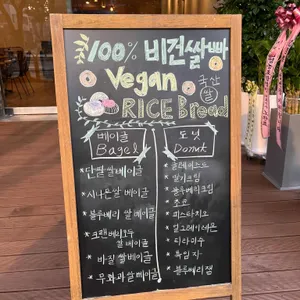 100% 비건쌀빵
Vegan
국산
쌀
RICE Bread
베이글
Bagel
* 단팥쌀베이글
* 시나몬쌀 베이글
* 블루베리 쌀 베이글
* 크랜베리호두
쌀베이글
* 바질 쌀베이글
* 무화과쌀베이글
도넛
Donut
* 글레이즈드
* 딸기크림
* 블루베리크림
* 초코
* 피스타치오
* 얼그레이레몬
* 티라미수
* 흑임자
* 블루베리잼